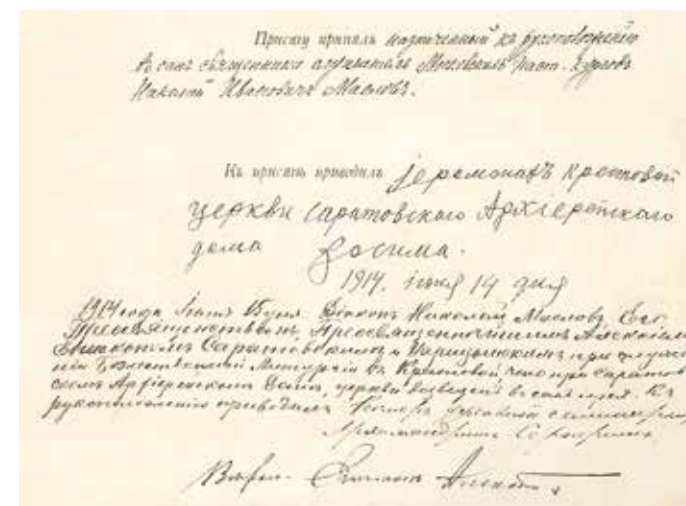 Присягу принялъ назначенный къ рукоположенію
въ санъ священника слушатель Московскихъ Паст. Курсовъ
Ивановичъ Масловъ.
Къ присягѣ приводилъ Іеромонахъ Крестовой
церкви Саратовскаго Архіерейскаго
дома Зосима.
1914. іюня 14 дня
1914 года Іюня Діаконъ Николай Масловъ Его
Преосвященствомъ, Преосвященнѣйшимъ Алексіемъ
Епископомъ Саратовскимъ и Царицынскимъ при служе
ніи Божественной Литургіи въ Крестовой что при Саратов
скомъ Архіерейскомъ Домѣ, церкви возведенъ въ санъ іерея. Къ
рукоположенію приводилъ Ректоръ духовной семинаріи,
Архимандритъ
Епископъ Алексій